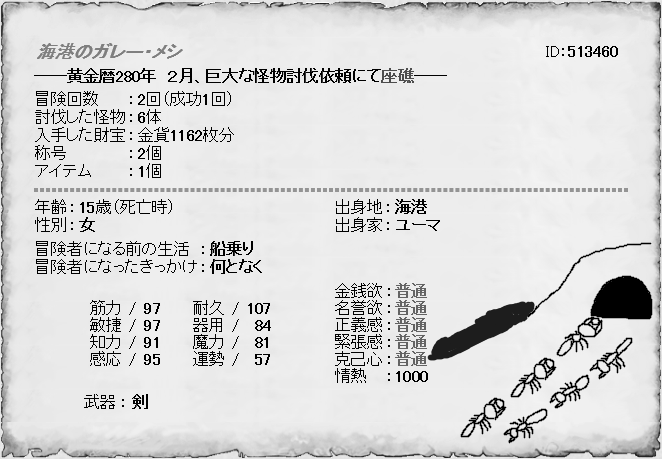 海港のガレー・メシ
ID:513460
――黄金暦280年　2月、巨大な怪物討伐依頼にて座礁――
冒険回数　：2回（成功1回）
討伐した怪物：6体
入手した財宝：金貨1162枚分
称号　　　：2個
アイテム　：1個
年齢：15歳（死亡時）
出身地：海港
性別：女
出身家：ユーマ
冒険者になる前の生活　：船乗り
冒険者になったきっかけ：何となく
金銭欲：普通
筋力 / 97　耐久 / 107
名誉欲：普通
敏捷 / 97　器用 / 84
正義感：普通
知力 / 91　魔力 / 81
緊張感：普通
感応 / 95　運勢 / 57
克己心：普通
情熱　：1000
武器：剣